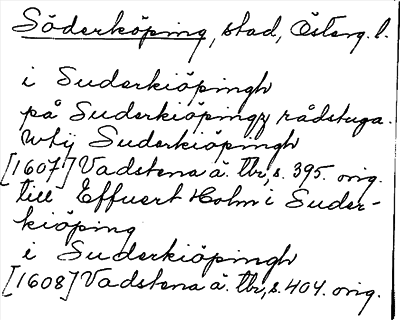 Söderköping, stad, Österg. l.
i Suderkiöpingh
på Suderkiöpingz rådstuga.
Whij Suderkiöpingh
[1607] Vadstena ä. tbr, s. 395. orig.
till Effuert Holm i Suder-
kiöping
i Suderkiöpingh
[1608] Vadstena ä. tbr, s. 404. orig.